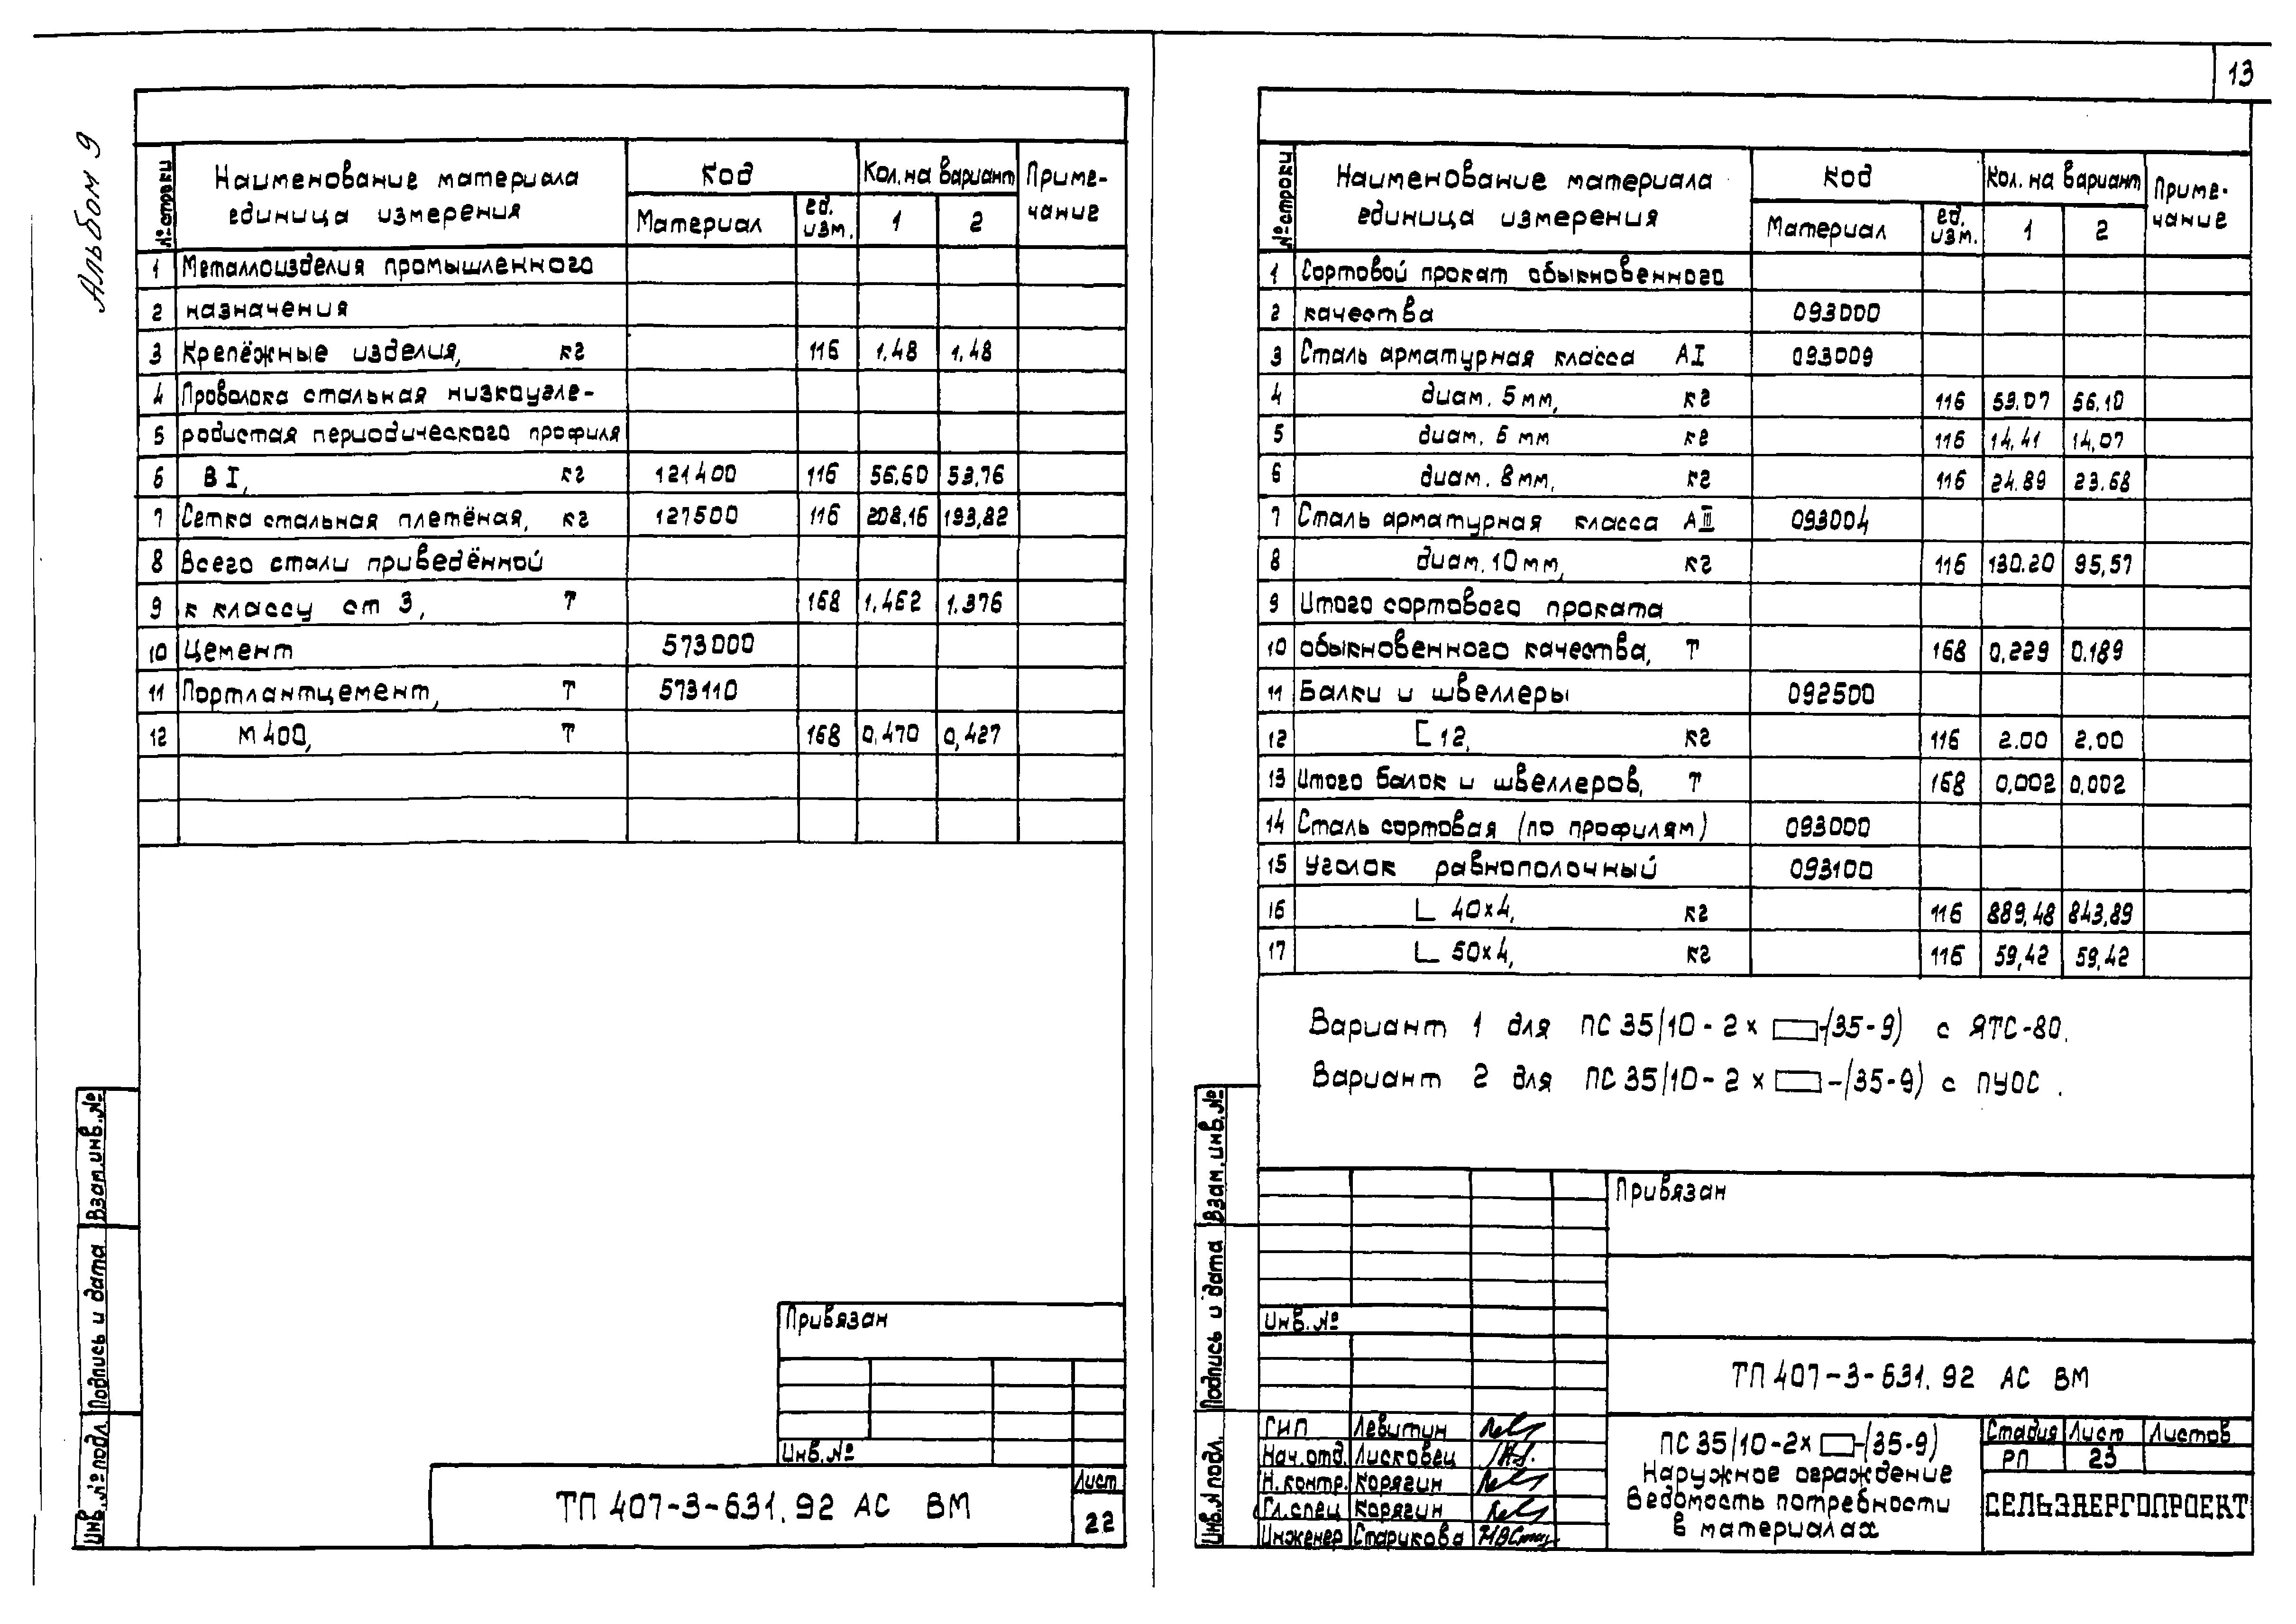 13
Альбом 9
№ строки
Наименование материала
единица измерения
Код
Материал
ед. изм.
Кол. на вариант
1
2
Приме-
чание
1 Металлоизделия промышленного
2 назначения
3 Крепёжные изделия, кг 116 1.48 1.48
4 Проволока стальная низкоугле-
5 родистая периодического профиля
6 ВI, кг 121400 116 56,60 53,76
7 Сетка стальная плетёная, кг 127500 116 208,16 193,82
8 Всего стали приведённой
9 к классу ст 3, т 168 1.462 1.376
10 Цемент 573000
11 Портлантцемент, т 573110
12 М 400, т 168 0,470 0,427
Взам. инв. №
Подпись и дата
Инв. № подл.
Привязан
Инв. №
ТП 407-3-631.92 АС ВМ
Лист
22
№ строки
Наименование материала
единица измерения
Код
Материал
ед. изм.
Кол. на вариант
1
2
Приме-
чание
1 Сортовой прокат обыкновенного
2 качества 093000
3 Сталь арматурная класса АI 093009
4 диам. 5 мм, кг 116 59.07 56.10
5 диам. 6 мм кг 116 14,41 14,07
6 диам. 8 мм, кг 116 24.89 23.68
7 Сталь арматурная класса АIII 093004
8 диам. 10 мм, кг 116 130.20 95,57
9 Итого сортового проката
10 обыкновенного качества, т 168 0,229 0.189
11 Балки и швеллеры 092500
12 [ 12, кг 116 2.00 2,00
13 Итого балок и швеллеров, т 168 0,002 0,002
14 Сталь сортовая (по профилям) 093000
15 Уголок равнополочный 093100
16 L 40х4, кг 116 889,48 843,89
17 L 50х4, кг 116 59,42 59,42
Вариант 1 для ПС 35/10-2х □-(35-9) с ЯТС-80.
Вариант 2 для ПС 35/10-2х □-(35-9) с ПУОС.
Взам. инв. №
Подпись и дата
Инв. № подл.
Привязан
Инв. №
ТП 407-3-631.92 АС ВМ
ГИП Левитин
Нач. отд. Лисковец
Н. контр. Корягин
Гл. спец Корягин
Инженер Старикова
ПС 35/10-2х □-(35-9)
Наружное ограждение
Ведомость потребности
в материалах
Стадия Лист Листов
РП 23
СЕЛЬЭНЕРГОПРОЕКТ